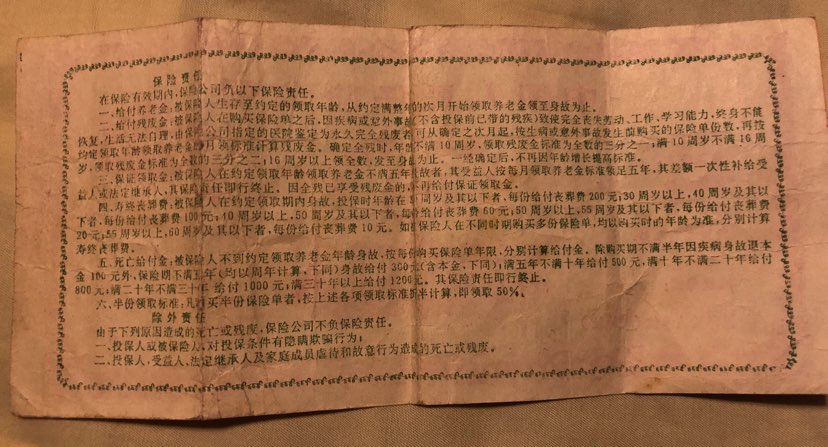 保险责任
在保险有效期内，保险公司负以下保险责任。
一、给付养老金，被保险人生存至约定的领取年龄，从约定满整年的次月开始领取养老金领至身故为止。
二、给付残废金，被保险人在购买保险单之后，因疾病或意外事故(不含投保前已带的残疾)致使完全丧失劳动、工作、学习能力，终身不能
恢复，生活无法自理，由保险公司指定的医院鉴定为永久完全残废者，可从确定之次月起，按生病或意外事故发生前购买的保险单份数，再按
约定领取年龄领取养老金的月领标准计算残废金。确定全残时，年龄不满10周岁，领取残废金标准为全数的三分之一；满10周岁不满16周
岁，领取残废金标准为全数的三分之二；16周岁以上领全数，发至身故为止。一经确定后，不再因年龄增长提高标准。
三、保证领取金，被保险人在约定领取年龄领取养老金不满五年故者，其受益人按每月领取养老金标准领足五年，其差额一次性补给受
益人或法定继承人，其保险责任即行终止。因全残已享受残废金的，不再给付保证领取金。
四、寿终丧葬费，被保险人在约定领取期内身故，投保时年龄在周岁及其以下者，每份给付丧葬费200元；30周岁以上，40周岁及其以
下者，每份给付丧葬费100元；40周岁以上，50周岁及其以下者，每份给付丧葬费60元；50周岁以上，55周岁及其以下者，每份给付丧葬费
20元；55周岁以上，60周岁及其以下者，每份给付丧葬费10元。如被保险人在不同时期购买多份保险单，均以购买时的年龄为准，分别计算
寿终丧葬费。
五、死亡给付金，被保险人不到约定领取养老金年龄身故，按每份购买保险单年限，分别计算给付金。除购买期不满半年因疾病身故退本
金100元外，保险期不满五年(均以周年计算，下同)身故给付300元(含本金，下同)；满五年不满十年给付500元，满十年不满二十年给付
800元；满二十年不满三十年给付1000元；满三十年以上给付1200元。其保险责任即行终止。
六、半份领取标准，凡购买半份保险单者，按上述各项领取标准折半计算，即领取50%。
除外责任
由于下列原因造成的死亡或残废，保险公司不负保险责任。
一、投保人或被保险人，对投保条件有隐瞒欺骗行为；
二、投保人，受益人，法定继承人及家庭成员虐待和故意行为造成的死亡或残废。